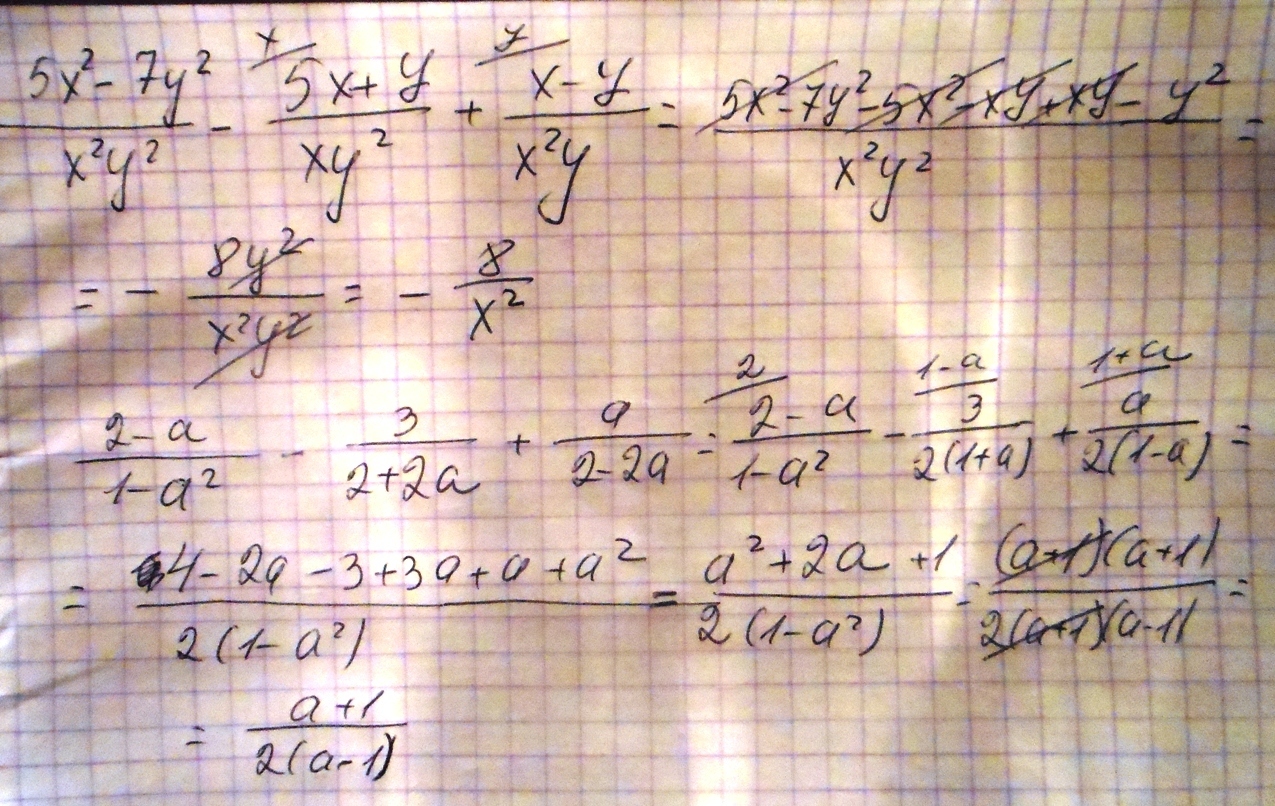 (5x²-7y²)/(x²y²) - x/(5x+y)/(xy²) + y/(x-y)/(x²y) = (5x²-7y²-5x²-xy+xy-y²)/(x²y²) =
= - (8y²)/(x²y²) = - 8/x²
(2-a)/(1-a²) - 3/(2+2a) + a/(2-2a) = 2/(2-a)/(1-a²) - (1-a)/3/(2(1+a)) + (1+a)/a/(2(1-a)) =
= (4-2a-3+3a+a+a²)/(2(1-a²)) = (a²+2a+1)/(2(1-a²)) = ((a+1)(a+1))/(2(a+1)(a-1)) =
= (a+1)/(2(a-1))